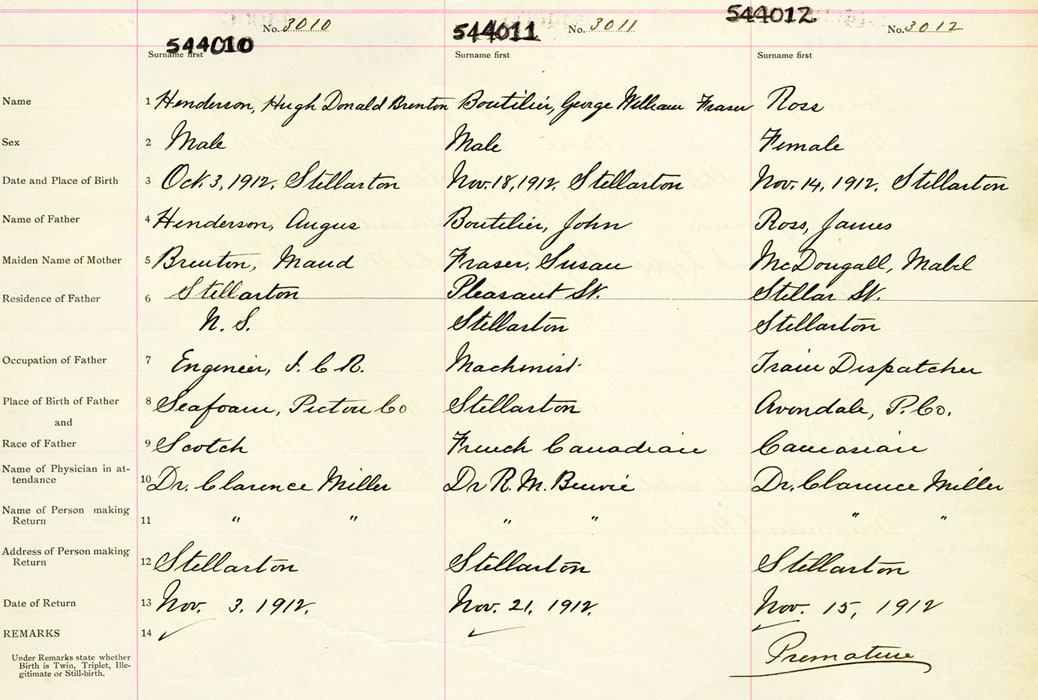 544010 No. 3010 544011 No. 3011 544012 No. 3012
Surname first Surname first Surname first
Name 1 Henderson, Hugh Donald Brenton Boutilier, George William Fraser Ross
Sex 2 Male Male Female
Date and Place of Birth 3 Oct. 3, 1912, Stellarton Nov. 18, 1912, Stellarton Nov. 14, 1912, Stellarton
Name of Father 4 Henderson, Angus Boutilier, John Ross, James
Maiden Name of Mother 5 Brenton, Maud Fraser, Susan McDougall, Mabel
Residence of Father 6 Stellarton Pleasant St. Stellar St.
N. S. Stellarton Stellarton
Occupation of Father 7 Engineer, I. C. R. Machinist Train Dispatcher
Place of Birth of Father 8 Seafoam, Pictou Co Stellarton Avondale, P. Co.
and
Race of Father 9 Scotch French Canadian Caucasian
Name of Physician in at-
tendance 10 Dr. Clarence Miller Dr R. M. Dr. Clarence Miller
Name of Person making
Return 11 " " " " " "
Address of Person making
Return 12 Stellarton Stellarton Stellarton
Date of Return 13 Nov. 3. 1912. Nov. 21, 1912. Nov. 15, 1912
REMARKS 14 ✓ ✓ ✓
Under Remarks state whether
Birth is Twin, Triplet, Ille-
gitimate or Still-birth.
Premature